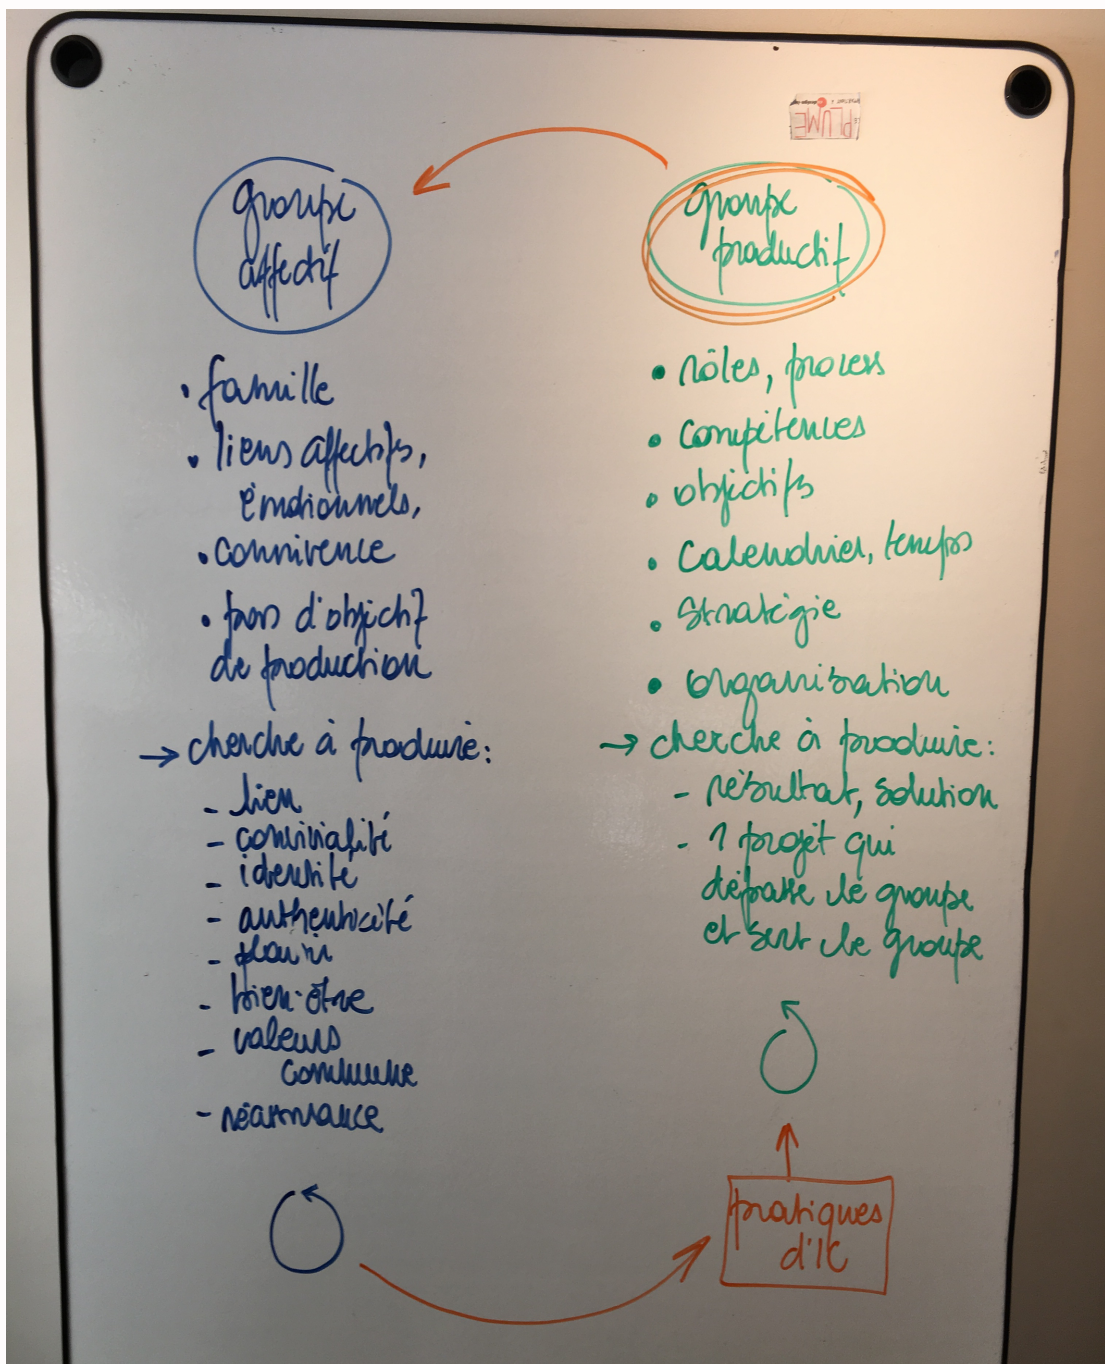 groupe
affectif
• famille
• liens affectifs,
émotionnels,
• connivence
• pas d'objectif
de production
→ cherche à produire:
- lien
- convivialité
- identité
- authenticité
- plaisir
- bien-être
- valeurs
commune
- réassurance
PLUME
groupe
productif
• rôles, process
• compétences
• objectifs
• calendrier, temps
• stratégie
• organisation
→ cherche à produire:
- résultat, solution
- 1 projet qui
dépasse le groupe
et sert le groupe
pratiques
d'IC